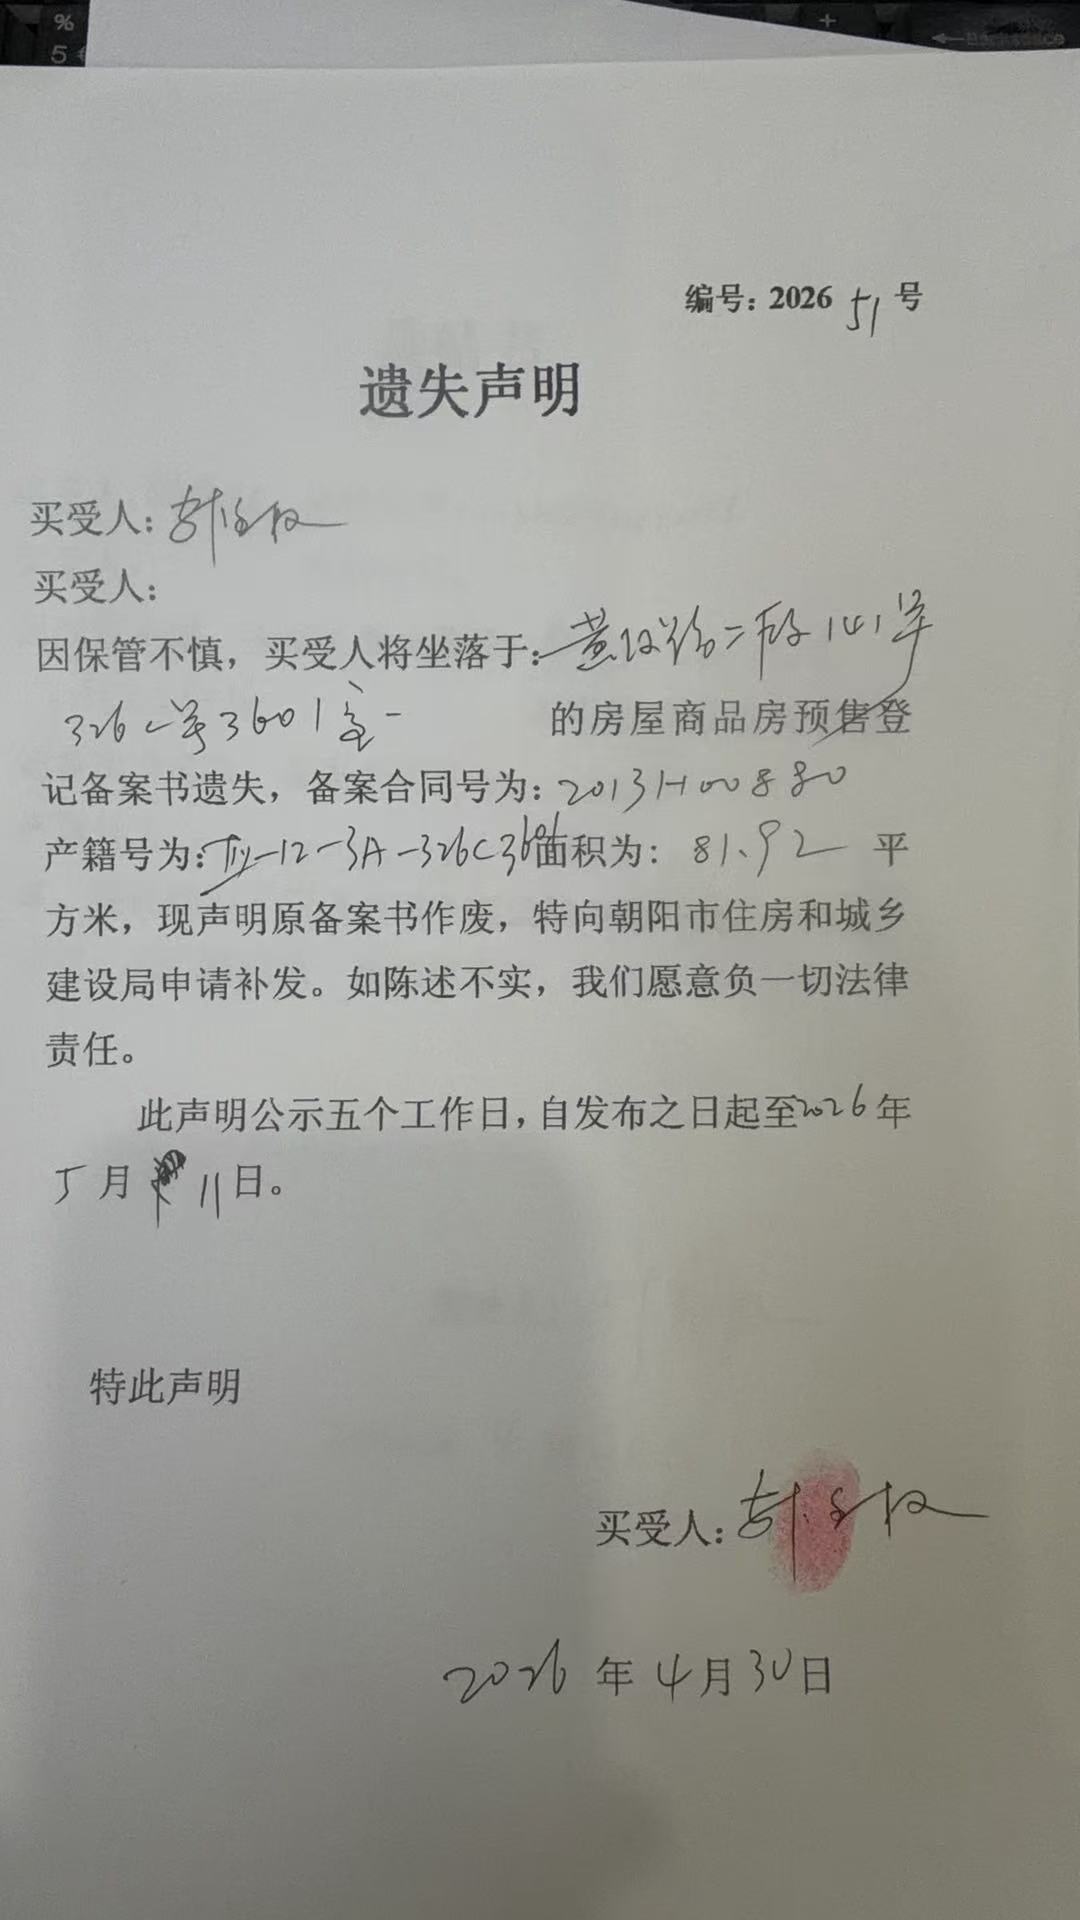 编号：2026 51 号
遗失声明
买受人：
买受人：
因保管不慎，买受人将坐落于：黄河路二段141号
326C 3601室 的房屋商品房预售登
记备案书遗失，备案合同号为：2013H00880
产籍号为：-12-3A-326C3601面积为：81.92 平
方米，现声明原备案书作废，特向朝阳市住房和城乡
建设局申请补发。如陈述不实，我们愿意负一切法律
责任。
此声明公示五个工作日，自发布之日起至2026年
5月 11日。
特此声明
买受人：
2026 年 4月30日